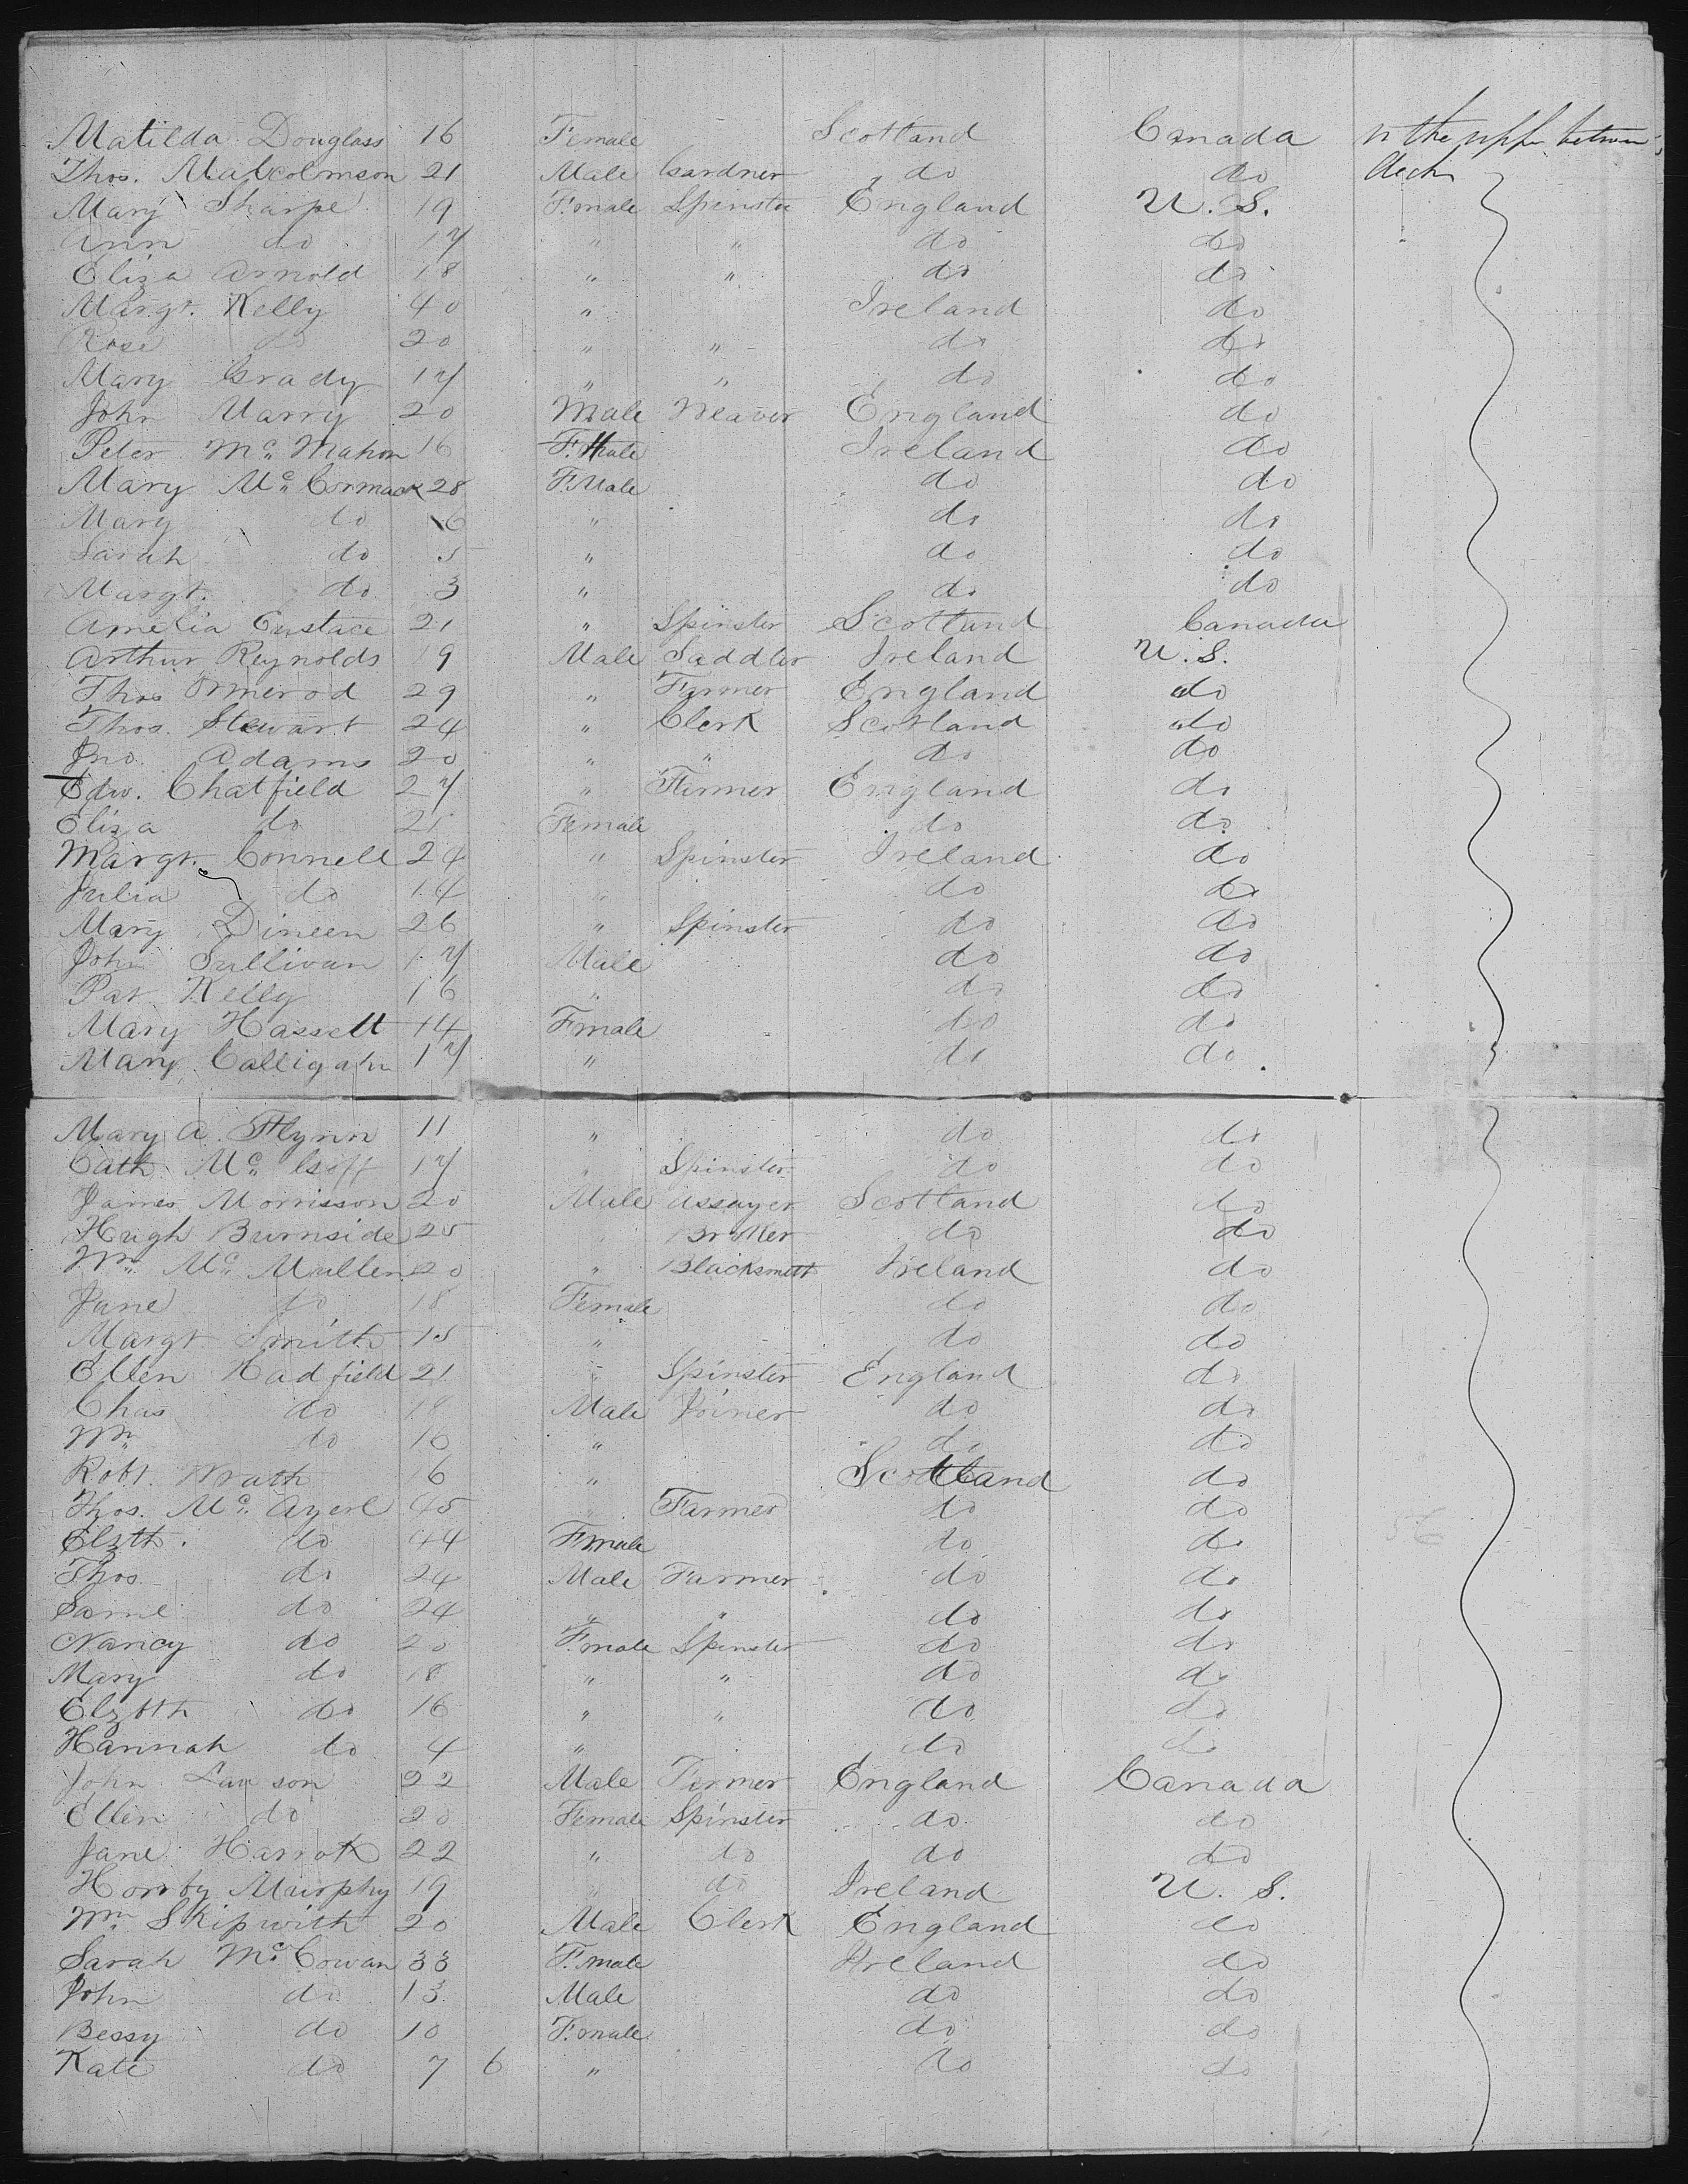 Matilda Douglass 16 Female Scotland Canada in the upper between
Thos. Malcolmson 21 Male Gardner do do deck
Mary Sharpe 19 Female Spinster England U. S.
Ann do 17 " " do do
Eliza Arnold 18 " " do do
Margt. Kelly 40 " Ireland do
Rose do 20 " " do do
Mary Grady 17 " " do do
John Marry 20 Male Weaver England do
Peter Mc Mahon 16 Male Ireland do
Mary Mc Cormack 28 F.Male do do
Mary do 6 " do do
Sarah do 5 " do do
Margt. do 3 " do do
Amelia Eustace 21 " Spinster Scotland Canada
Arthur Reynolds 19 Male Saddler Ireland U. S.
Thos Ormerod 29 " Farmer England do
Thos. Stewart 24 " Clerk Scotland do
Jno. Adams 20 " " do do
Edw. Chatfield 27 " Farmer England do
Eliza do 25 Female do do
Margt. Connell 24 " Spinster Ireland do
Julia do 14 " do do
Mary Dineen 26 " Spinster do do
John Sullivan 17 Male do do
Pat Kelly 16 " do do
Mary Hassett 14 Fmale do do
Mary Calligahn 17 " do do
Mary A. Flynn 11 " do do
Cath Mc Goff 17 " Spinster do do
James Morrisson 20 Male Assayer Scotland do
Hugh Burnside 25 " do do
Wm Mc Mullen 20 " Blacksmith Ireland do
Jane do 18 Female do do
Margt Smith 15 " do do
Ellen Hadfield 21 " Spinster England do
Chas do 19 Male Joiner do do
Wm do 10 " do do
Robt. Wrath 16 " Scotland do
Thos. Mc Ayerl 45 " Farmer do do
Elzth. do 44 Fmale do do
Thos do 24 Male Farmer do do
Saml do 24 " " do do
Nancy do 20 F.male Spinster do do
Mary do 18 " " do do
Elzbth do 16 " " do do
Hannah do 4 " do do
John Lawson 22 Male Farmer England Canada
Ellen do 20 Female Spinster do do
Jane Harrott 22 " do do do
Hornby Murphy 19 " do Ireland U. S.
Wm Skipwith 20 Male Clerk England do
Sarah Mc Cowan 33 F.male Ireland do
John do 13 Male do do
Bessy do 10 F.male do do
Kate do 7 6 " do do